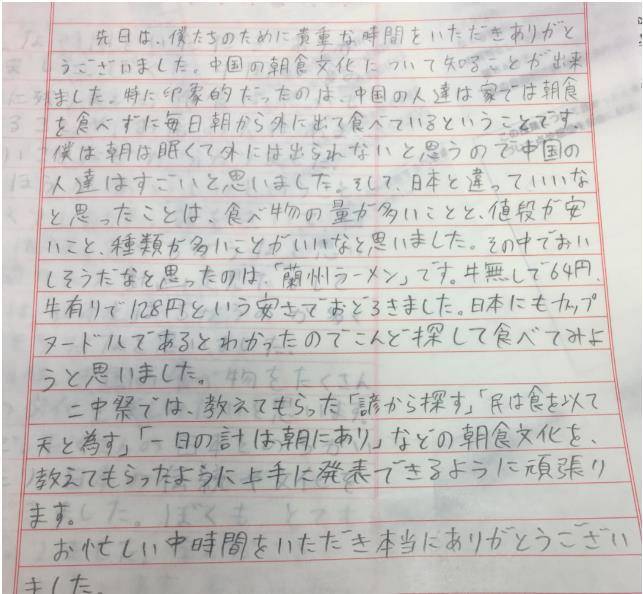 先日は、僕たちのために貴重な時間をいただきありがと
うございました。中国の朝食文化について知ることが出来
ました。特に印象的だったのは、中国の人達は家では朝食
を食べずに毎日朝から外に出て食べているということです。
僕は朝は眠くて外には出られないと思うので中国の
人達はすごいと思いました。そして、日本と違っていいな
と思ったことは、食べ物の量が多いことと、値段が安
いこと、種類が多いことがいいなと思いました。その中でおい
しそうだなと思ったのは、「蘭州ラーメン」です。牛無しで64円、
牛有りで128円という安さでおどろきました。日本にもカップ
ヌードルであるとわかったのでこんど探して食べてみよ
うと思いました。
二中祭では、教えてもらった「諺から探す」「民は食を以て
天と為す」「一日の計は朝にあり」などの朝食文化を、
教えてもらったように上手に発表できるように頑張り
ます。
お忙しい中時間をいただき本当にありがとうござい
ました。